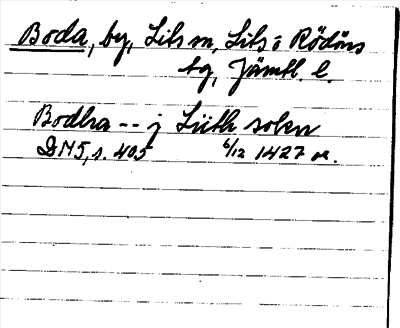 Boda, by, Lits sn, Lits o Rödöns
tg, Jämtl. l.
Bodha -- j Lüth sokn
DN5, s. 405 6/12 1427 or.